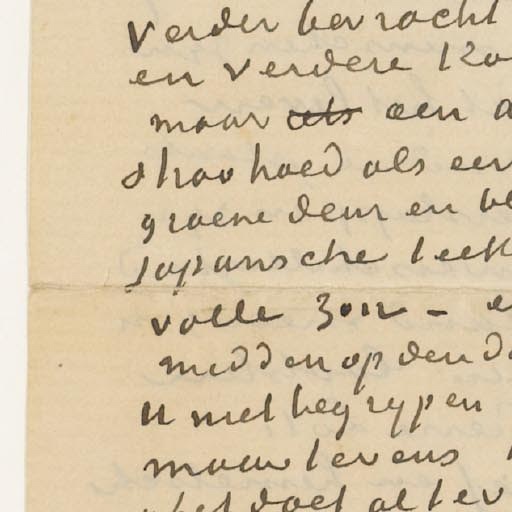 Verder bevracht
en verdere
maar als een
stroohoed als een
groene deur en
Japansche
volle zon – e
midden op den d
U niet begrypen
maar tevens
het doet al